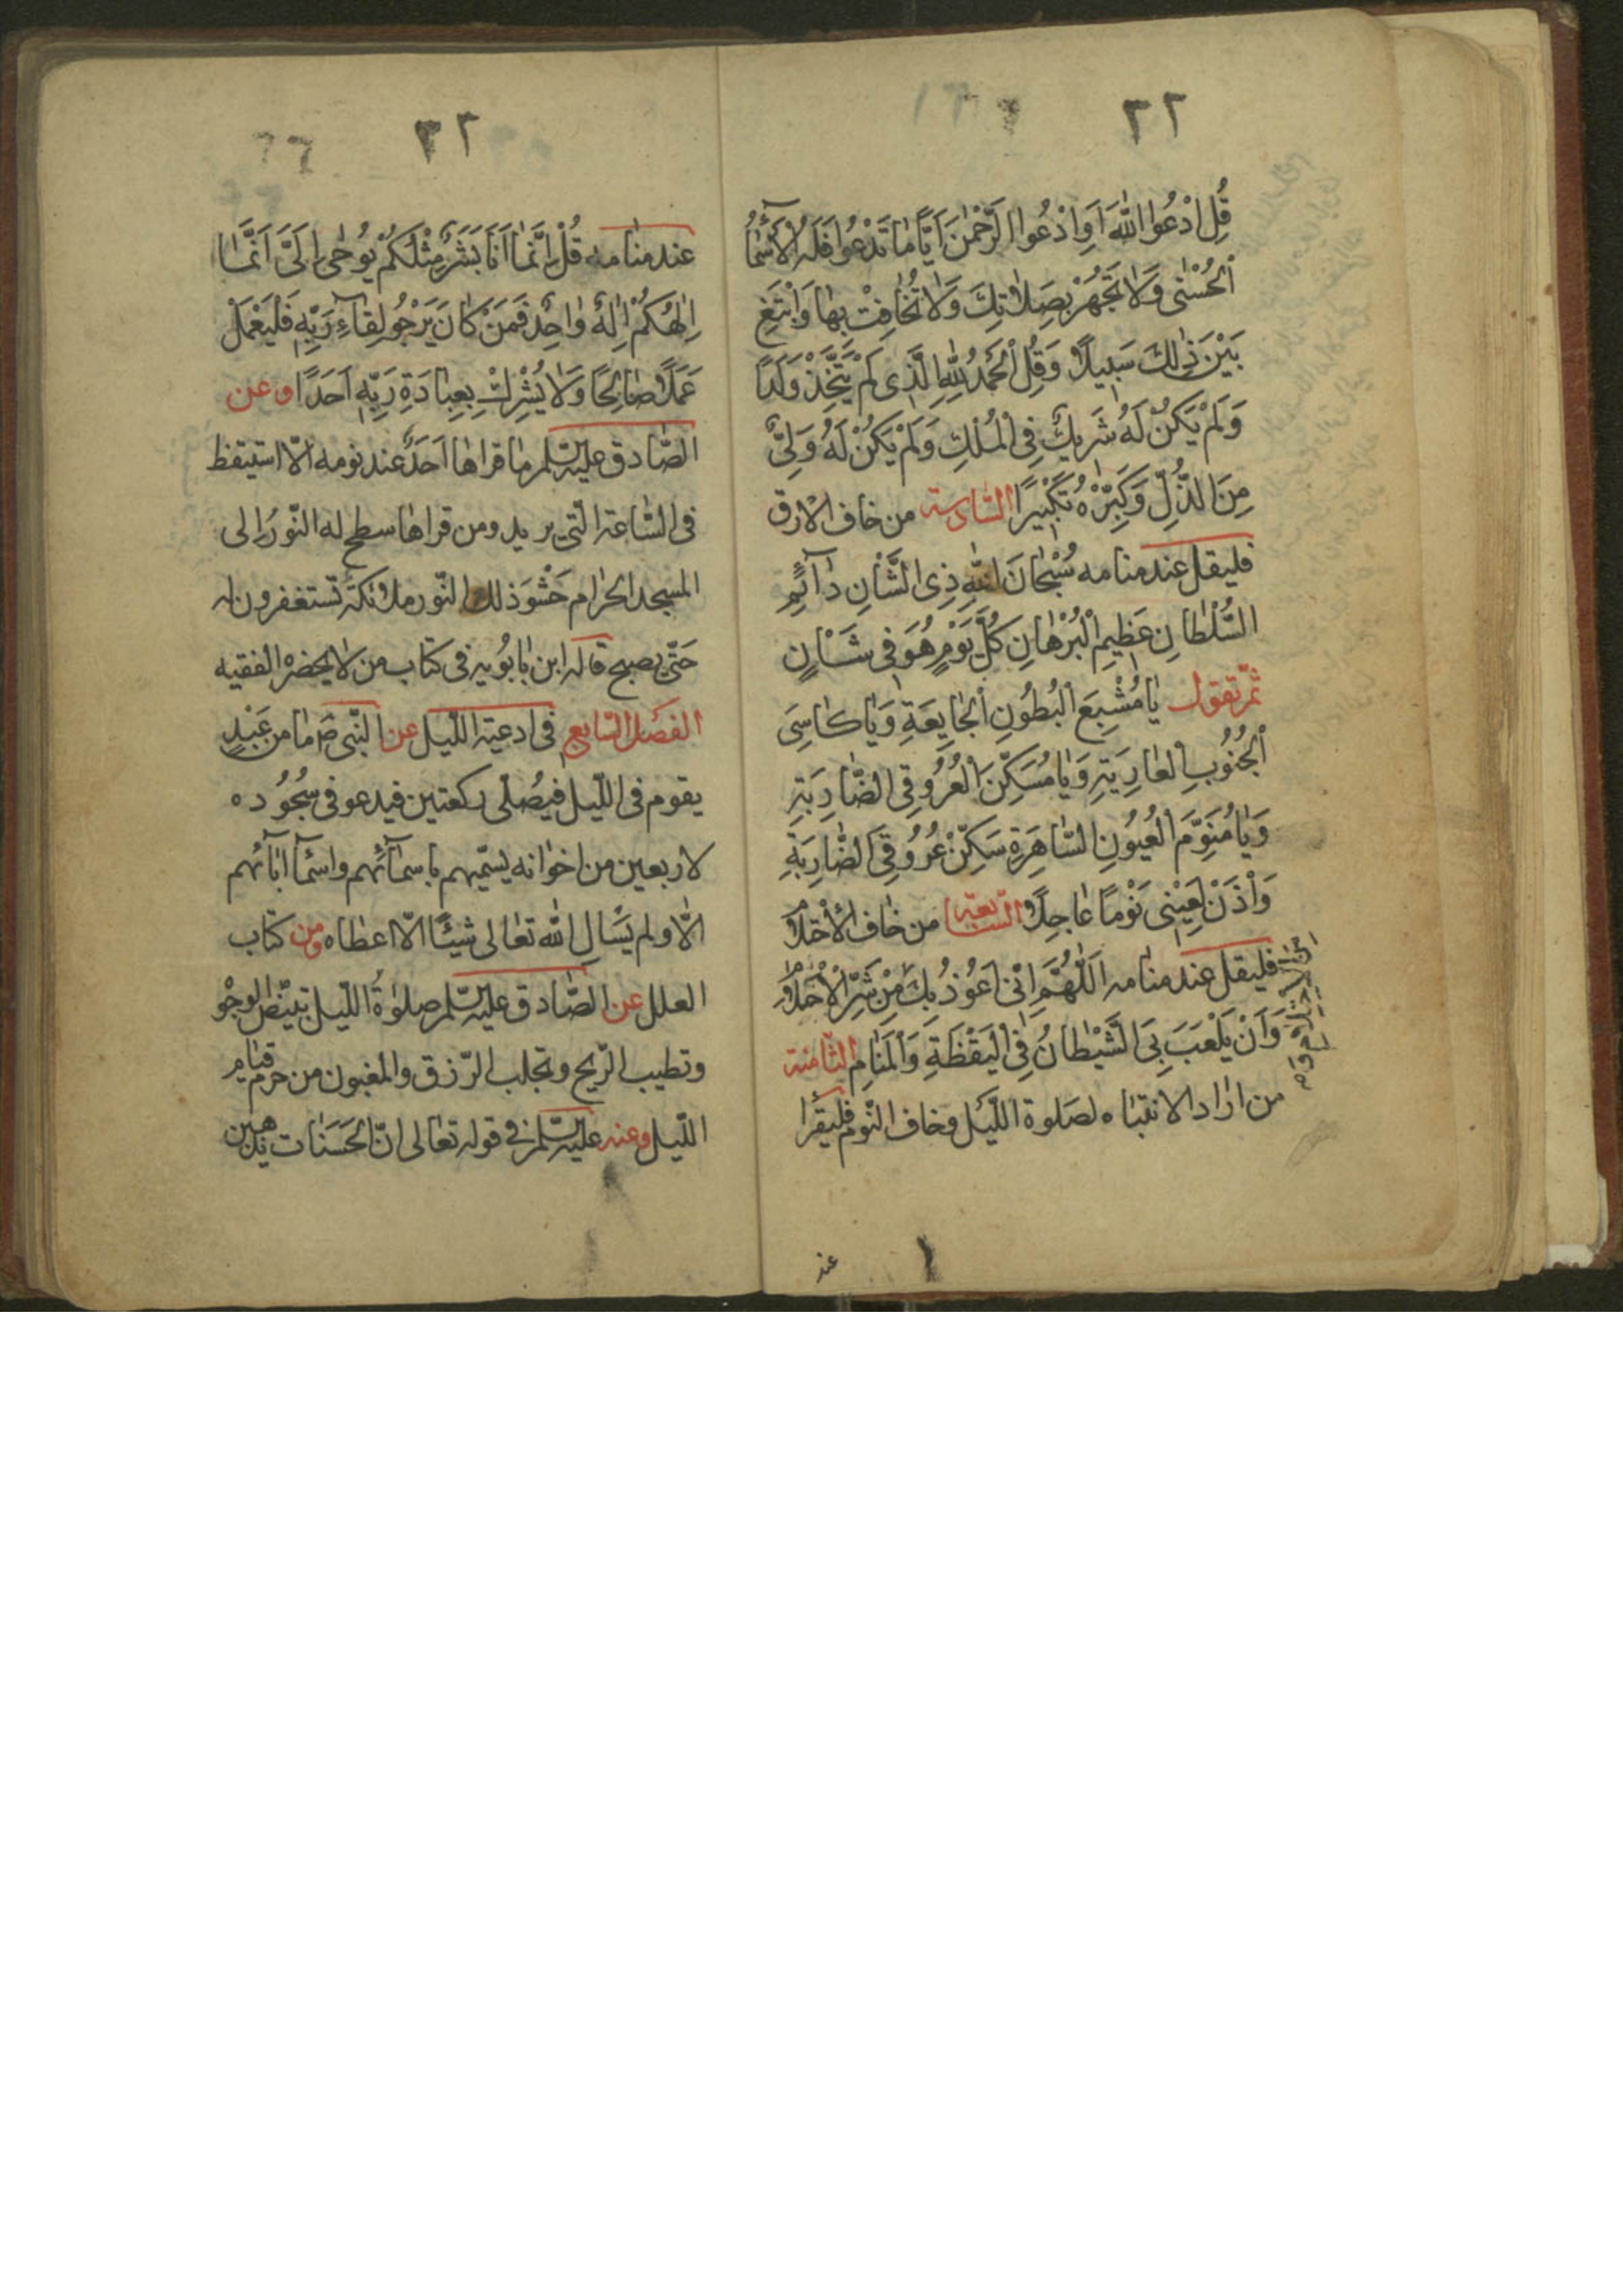 ٣٢
قُلِ ادْعُوا اللّٰهَ اَوِ ادْعُوا الرَّحْمٰنَ اَيًّا مٰا تَدْعُوا فَلَهُ الْأَسْمٰآءُ
الْحُسْنٰى وَلٰا تَجْهَرْ بِصَلٰاتِكَ وَلٰا تُخٰافِتْ بِهٰا وَابْتَغِ
بَيْنَ ذٰلِكَ سَبِيلًا وَقُلِ الْحَمْدُ لِلّٰهِ الَّذِى لَمْ يَتَّخِذْ وَلَدًا
وَلَمْ يَكُنْ لَهُ شَرِيكٌ فِى الْمُلْكِ وَلَمْ يَكُنْ لَهُ وَلِىٌّ
مِنَ الذُّلِّ وَكَبِّرْهُ تَكْبِيرًا السّادسة من خاف الارق
فليقل عند منامه سُبْحٰانَ اللّٰهِ ذِى الشَّأْنِ دٰآئِمِ
السُّلْطٰانِ عَظِيمِ الْبُرْهٰانِ كُلَّ يَوْمٍ هُوَ فِى شَأْنٍ
ثمّ تقول يٰا مُشْبِعَ الْبُطُونِ الْجٰايِعَةِ وَيٰا كٰاسِىَ
الْجُنُوبِ الْعٰارِيَةِ وَيٰا مُسَكِّنَ الْعُرُوقِ الضّٰارِبَةِ
وَيٰا مُنَوِّمَ الْعُيُونِ السّٰاهِرَةِ سَكِّنْ عُرُوقِىَ الضّٰارِبَةِ
وَأْذَنْ لِعَيْنِى نَوْمًا عٰاجِلًا السّابعة من خاف الأحتلام
فليقل عند منامه اَللّٰهُمَّ اِنّى اَعُوْذُ بِكَ مِنْ شَرِّ الْأَحْلٰامِ
وَاَنْ يَلْعَبَ بِىَ الشَّيْطٰانُ فِى الْيَقْظَةِ وَالْمَنٰامِ الثّامنة
من اراد الانتباه لصلوة اللّيل وخاف النّوم فليقرا
عند
٣٢
عند منامه قُلْ اِنَّمٰا اَنَا بَشَرٌ مِثْلُكُمْ يُوحٰى اِلَىَّ اَنَّمٰا
اِلٰهُكُمْ اِلٰهٌ وٰاحِدٌ فَمَنْ كٰانَ يَرْجُو لِقٰآءَ رَبِّهِ فَلْيَعْمَلْ
عَمَلًا صٰالِحًا وَلٰا يُشْرِكْ بِعِبٰادَةِ رَبِّهِ اَحَدًا وعن
الصّادق عليه السّلم ما قراها احَدٌ عند نومه الّا استيقظ
فى السّاعة الّتى يريد ومن قراها سطح له النّورُ الى
المسجد الحرام حَشْوَ ذلك النّور ملائكة تستغفرون له
حَتّى يصبح قاله ابن بابُويه فى كتاب من لا يحضره الفقيه
الفصل السّابع فى ادعية اللّيل عن النّبى ص ما من عَبْدٍ
يقوم فى اللّيل فيُصلّى ركعتين فيدعو فى سُجُوده
لاربعين من اخوانه يسّميهم باسمآئهم واسمآ ابآئهم
الّا ولم يَسْألِ الله تعالى شيئًا الّا اعطاه ومن كتاب
العلل عن الصّادق عليه السّلم صلوٰةُ اللّيل تبيّض الوجُو
وتطيب الرّيح وتجلب الرّزق والمغبون من حرم قيام
اللّيل وعنه عليه السّلم فى قوله تعالى انّ الحَسَنات يذهبن